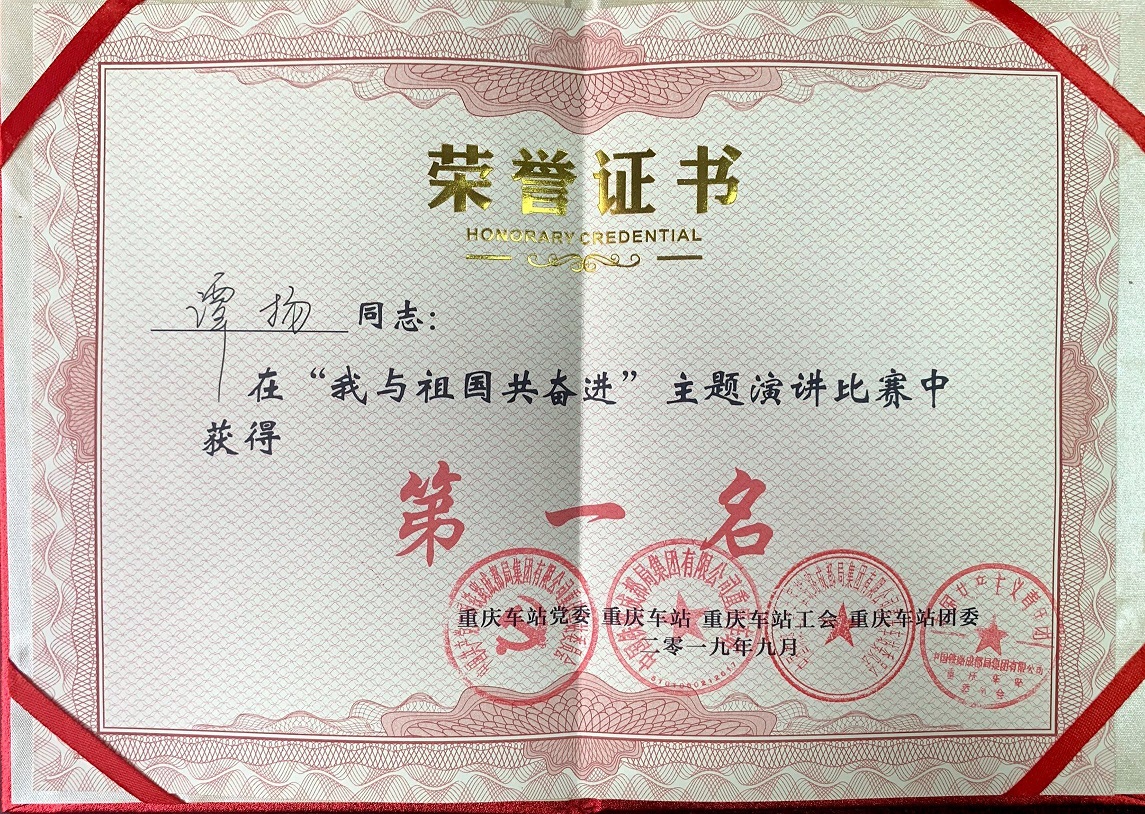 荣誉证书
HONORARY CREDENTIAL
谭扬 同志：
在“我与祖国共奋进”主题演讲比赛中
获得
第一名
重庆车站党委 重庆车站 重庆车站工会 重庆车站团委
二零一九年九月